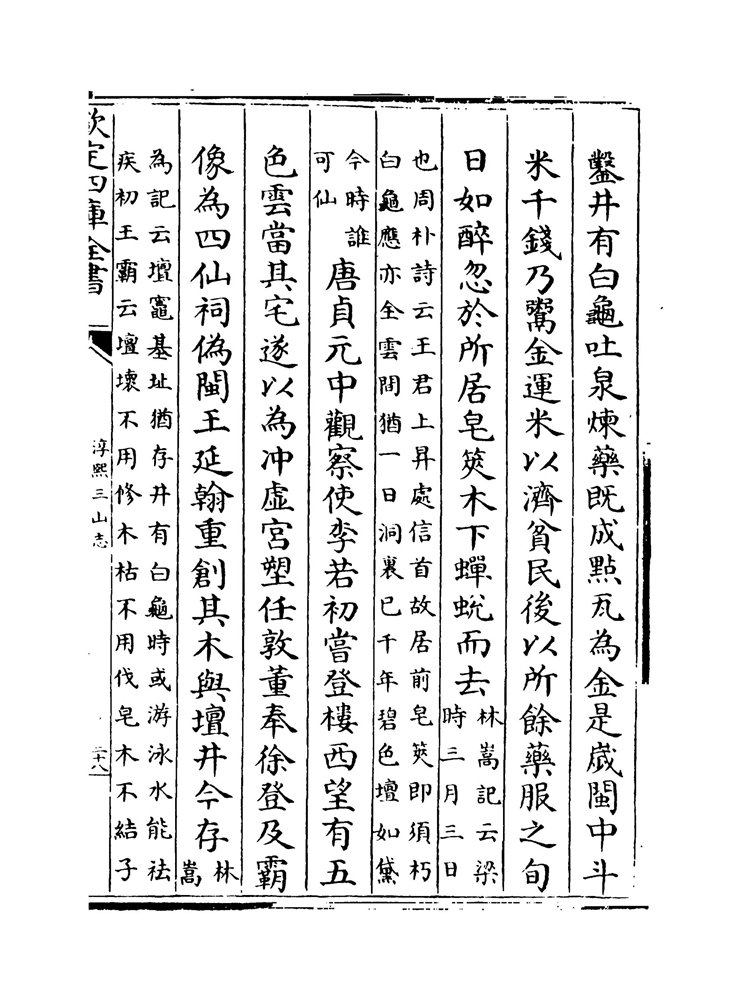 鑿井有白龜吐泉煉藥既成點瓦為金是歲閩中斗
米千錢乃鬻金運米以濟貧民後以所餘藥服之旬
日如醉忽於所居皂筴木下蟬蛻而去
林嵩記云梁
時三月三日
也周朴詩云王君上昇處信首故居前皂筴即須朽
白龜應亦全雲間猶一日洞裏已千年碧色壇如黛
今時誰
可仙
唐貞元中觀察使李若初嘗登樓西望有五
色雲當其宅遂以為冲虛宮塑任敦董奉徐登及霸
像為四仙祠偽閩王延翰重創其木與壇井今存
林
嵩
為記云壇竈基址猶存井有白龜時或游泳水能祛
疾初王霸云壇壞不用修木枯不用伐皂木不結子
欽定四庫全書
淳熙三山志
二十八